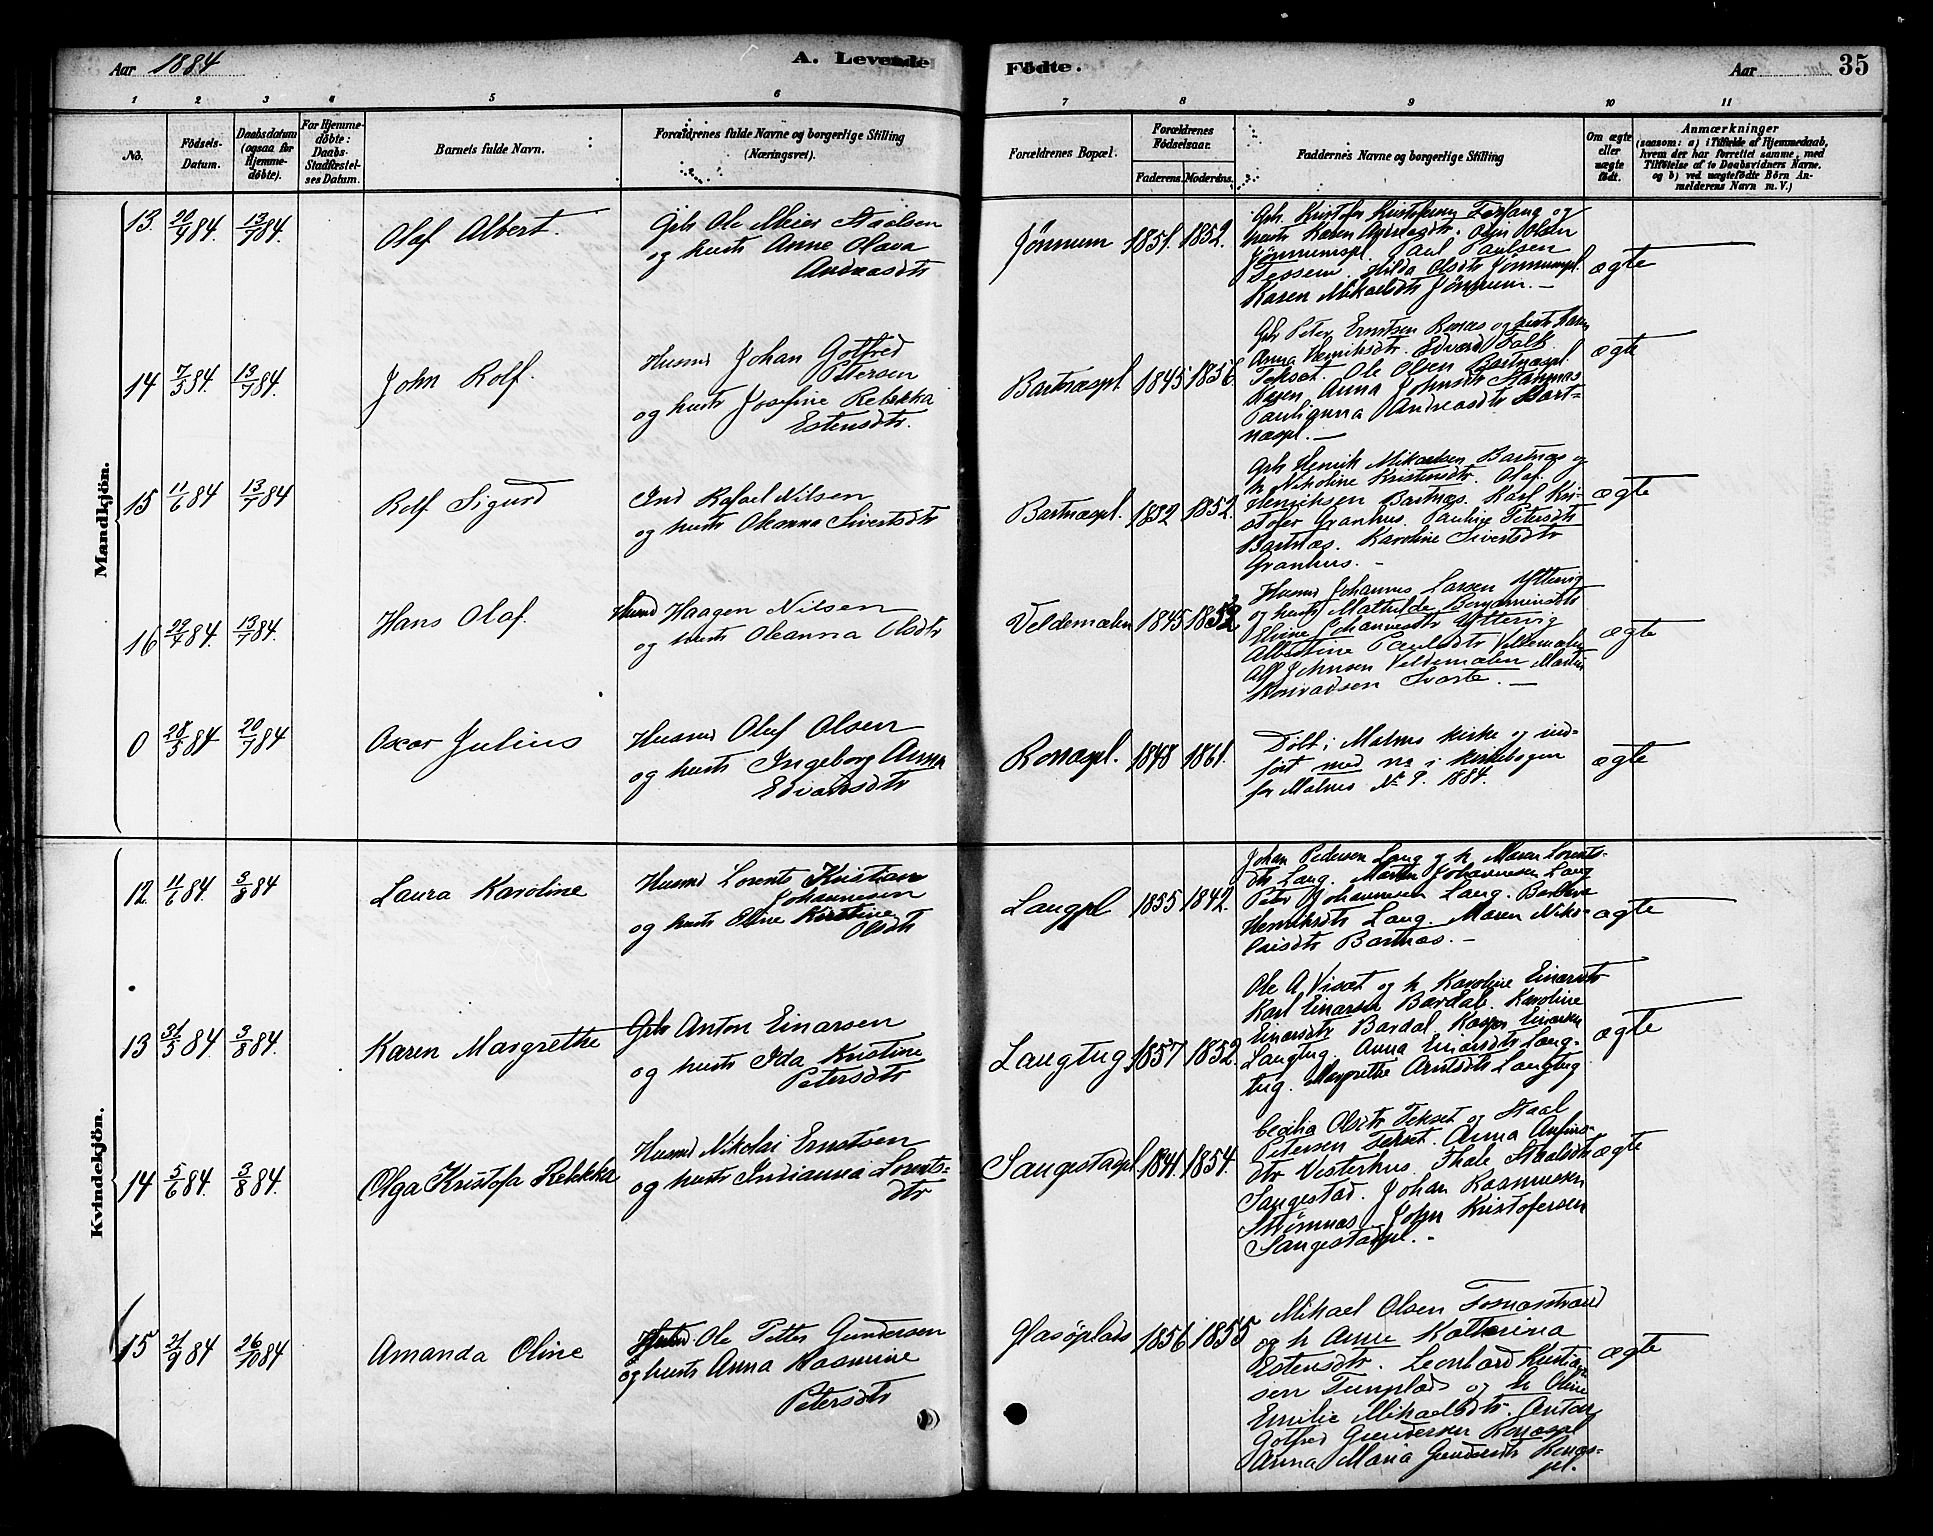 Aar 1884
A. Levende Födte.
Aar
35
1 2 3 4 5 6 7 8 9 10 11
No.
Födsels-
Datum.
Daabsdatum
(ogsaa for
Hjemme-
döbte).
For Hjemme-
döbte:
Daabs-
Stadfæstel-
ses Datum.
Barnets fulde Navn.
Forældrenes fulde Navne og borgerlige Stilling
(Næringsvei).
Forældrenes Bopæl.
Forældrenes
Födselsaar.
Faderens. Moderens.
Faddernes Navne og borgerlige Stilling
Om ægte
eller
uægte
födt.
Anmærkninger
(saasom: a) i Tilfælde af Hjemmedaab,
hvem der har forrettet samme, med
Tilföielse af to Daabsvidners Navne.
og b) ved uægtefödte Börn An-
melderens Navn m. V.)
Mandkjön.
13. 20/4 84. 13/7 84.
Olaf Albert.
Gbr. Ole Meier Staalsen
og hustr Anne Olava
Andreasdtr
Jønnum 1851. 1852.
Gbr. Kristofer Kristofersen Forfang og
hustr Karen
Jønnumspl. Paul Paulsen
Tessem. Hilda Olsdtr Jønnumspl.
Karen Mikaelsdtr Jønnum. —
ægte
14 7/5 84. 13/7 84.
John Rolf.
Husmd Johan Gotfred
Petersen
og hustr Josefine Rebekka
Estensdtr.
Bartnæspl 1845 1856.
Gbr Peter Ernstsen Rosnæs og hustr Karen
Anna Henriksdtr. Edvard Falk
Tekset. Ole Olsen Bartnæspl.
Karen Anna Johnsdtr
Paulianna Andreasdtr Bart-
næspl. —
ægte
15 11/6 84 13/7 84
Rolf Sigurd
Ind Rafael Nilsen
og hustr Oleanna Sivertsdtr
Bartnæspl. 1852 1852.
Gbr Henrik Mikaelsen Bartnæs og
h Nikoline Kristensdtr. Olaf
Henriksen Bartnæs. Karl Kri-
stofer Granhus. Pauline Petersdtr
Bartnæs. Karoline Sivertsdtr
Granhus. -
ægte
16 29/4 84. 13/7 84.
Hans Olaf.
Husmd Haagen Nilsen
og hustr Oleanna Olsdtr
Veldemælen 1845 1852
Husmd Johannes Larsen Yttervig
og hustr Mathilde Benjaminsdtr
Eline Johannesdtr Yttervig
Albertine Paulsdtr Veldemælen
Alf Johnsen Veldemælen Martin
Konradsen Svarte. —
ægte
0 28/5 84 20/7 84
Oscar Julius
Husmd Oluf Olsen
og hustr Ingeborg Anna
Edvardsdtr
Rosnæspl. 1848 1861.
Döbt i Malms kirke og ind-
ført med no i kirkebogen
for Malms No 9. 1884.
ægte
Kvindekjön.
12. 11/6 84. 3/8 84
Laura Karoline
Husmd Lorents Kristian
Johannesen
og hustr Eline Kirstine
Olsdtr
Langpl 1855 1842.
Johan Pedersen Lang og h Maren Lorents-
dtr Lang. Martin Johannesen Lang
Peter Johannesen Lang. Berthea
Henriksdtr Lang. Maren Niko-
laisdtr Bartnæs. -
ægte
13 31/5 84. 3/8 84.
Karen Margrethe
Gbr Anton Einarsen
og hustr Ida Kristine
Petersdtr
Langtug 1857 1852.
Ole A Viset og h Karoline Einarsdtr
Karl Einarsen Bardal. Karoline
Einarsdtr Bardal Kasper Einarsen
Langtug. Anna Einarsdtr Lang-
tug. Margrethe Arntsdtr Langtug
ægte
14 5/6 84. 3/8 84.
Olga Kristofa Rebekka
Husmd Nikolai Ernstsen
og hustr Indianna Lorents-
dtr
Sangestadpl 1841 1854.
Cecilia Olsdtr Tekset og Staal
Petersen Tekset. Anna
dtr Vesterhus. Thale Staalsdtr
Sangestad. Johan Rasmussen
Strømnæs. John Kristofersen
Sangestadpl. -
ægte
15 21/9 84 26/10 84
Amanda Oline
Husmd Ole Petter Gundersen
og hustr Anna Rasmine
Petersdtr
Glasøplads 1856 1855
Mikael Olsen Fosnæsstrand
og h Anne Katharina
Estensdtr. Leonhard Kristian-
sen Tunplads og h Oline
Emilie Mikaelsdtr. Anton
Gotfred Gundersen Rosnæspl
Anna Maria Gundersdtr Rosnæs-
pl.
ægte